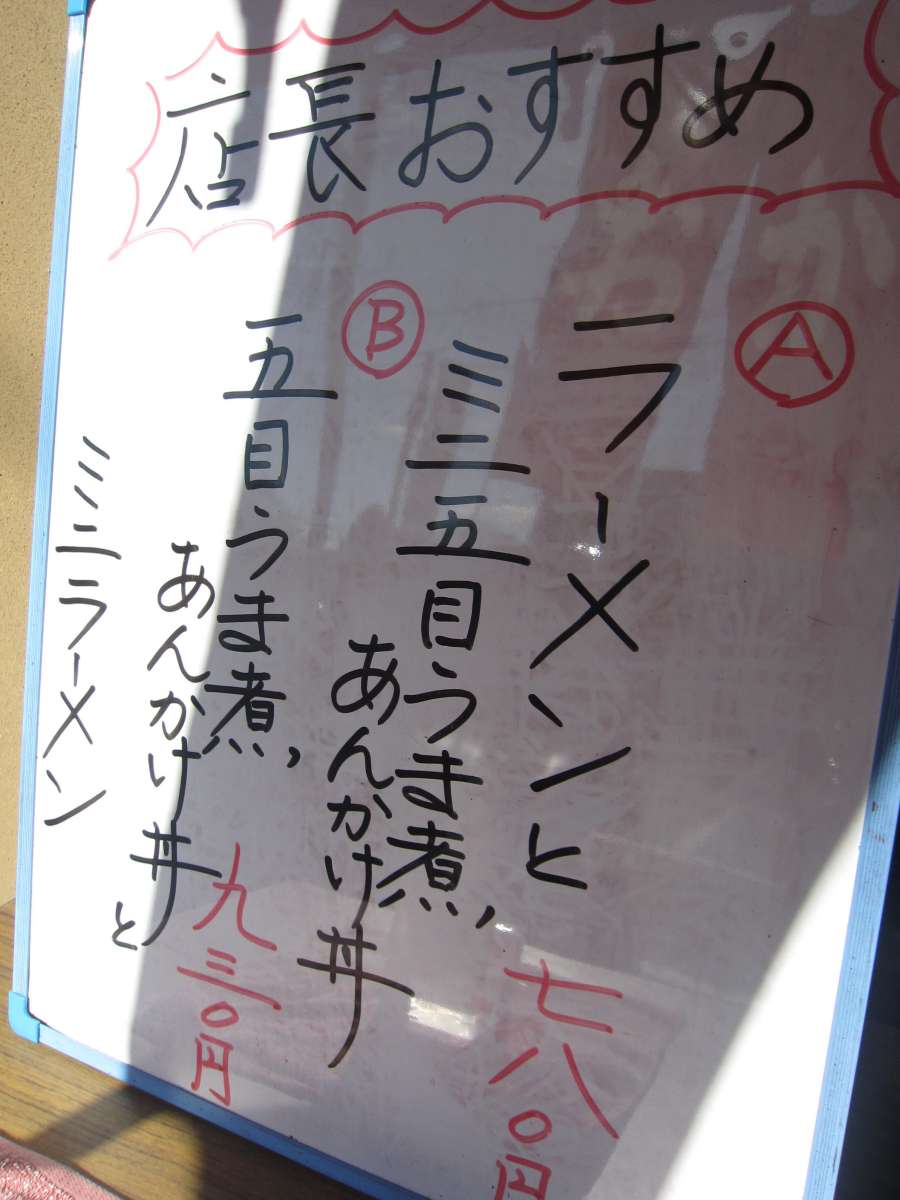 店長おすすめ
Ⓐ
ラーメンと
ミニ五目うま煮、
あんかけ丼
七八〇円
Ⓑ
五目うま煮、
あんかけ丼と
九三〇円
ミニラーメン